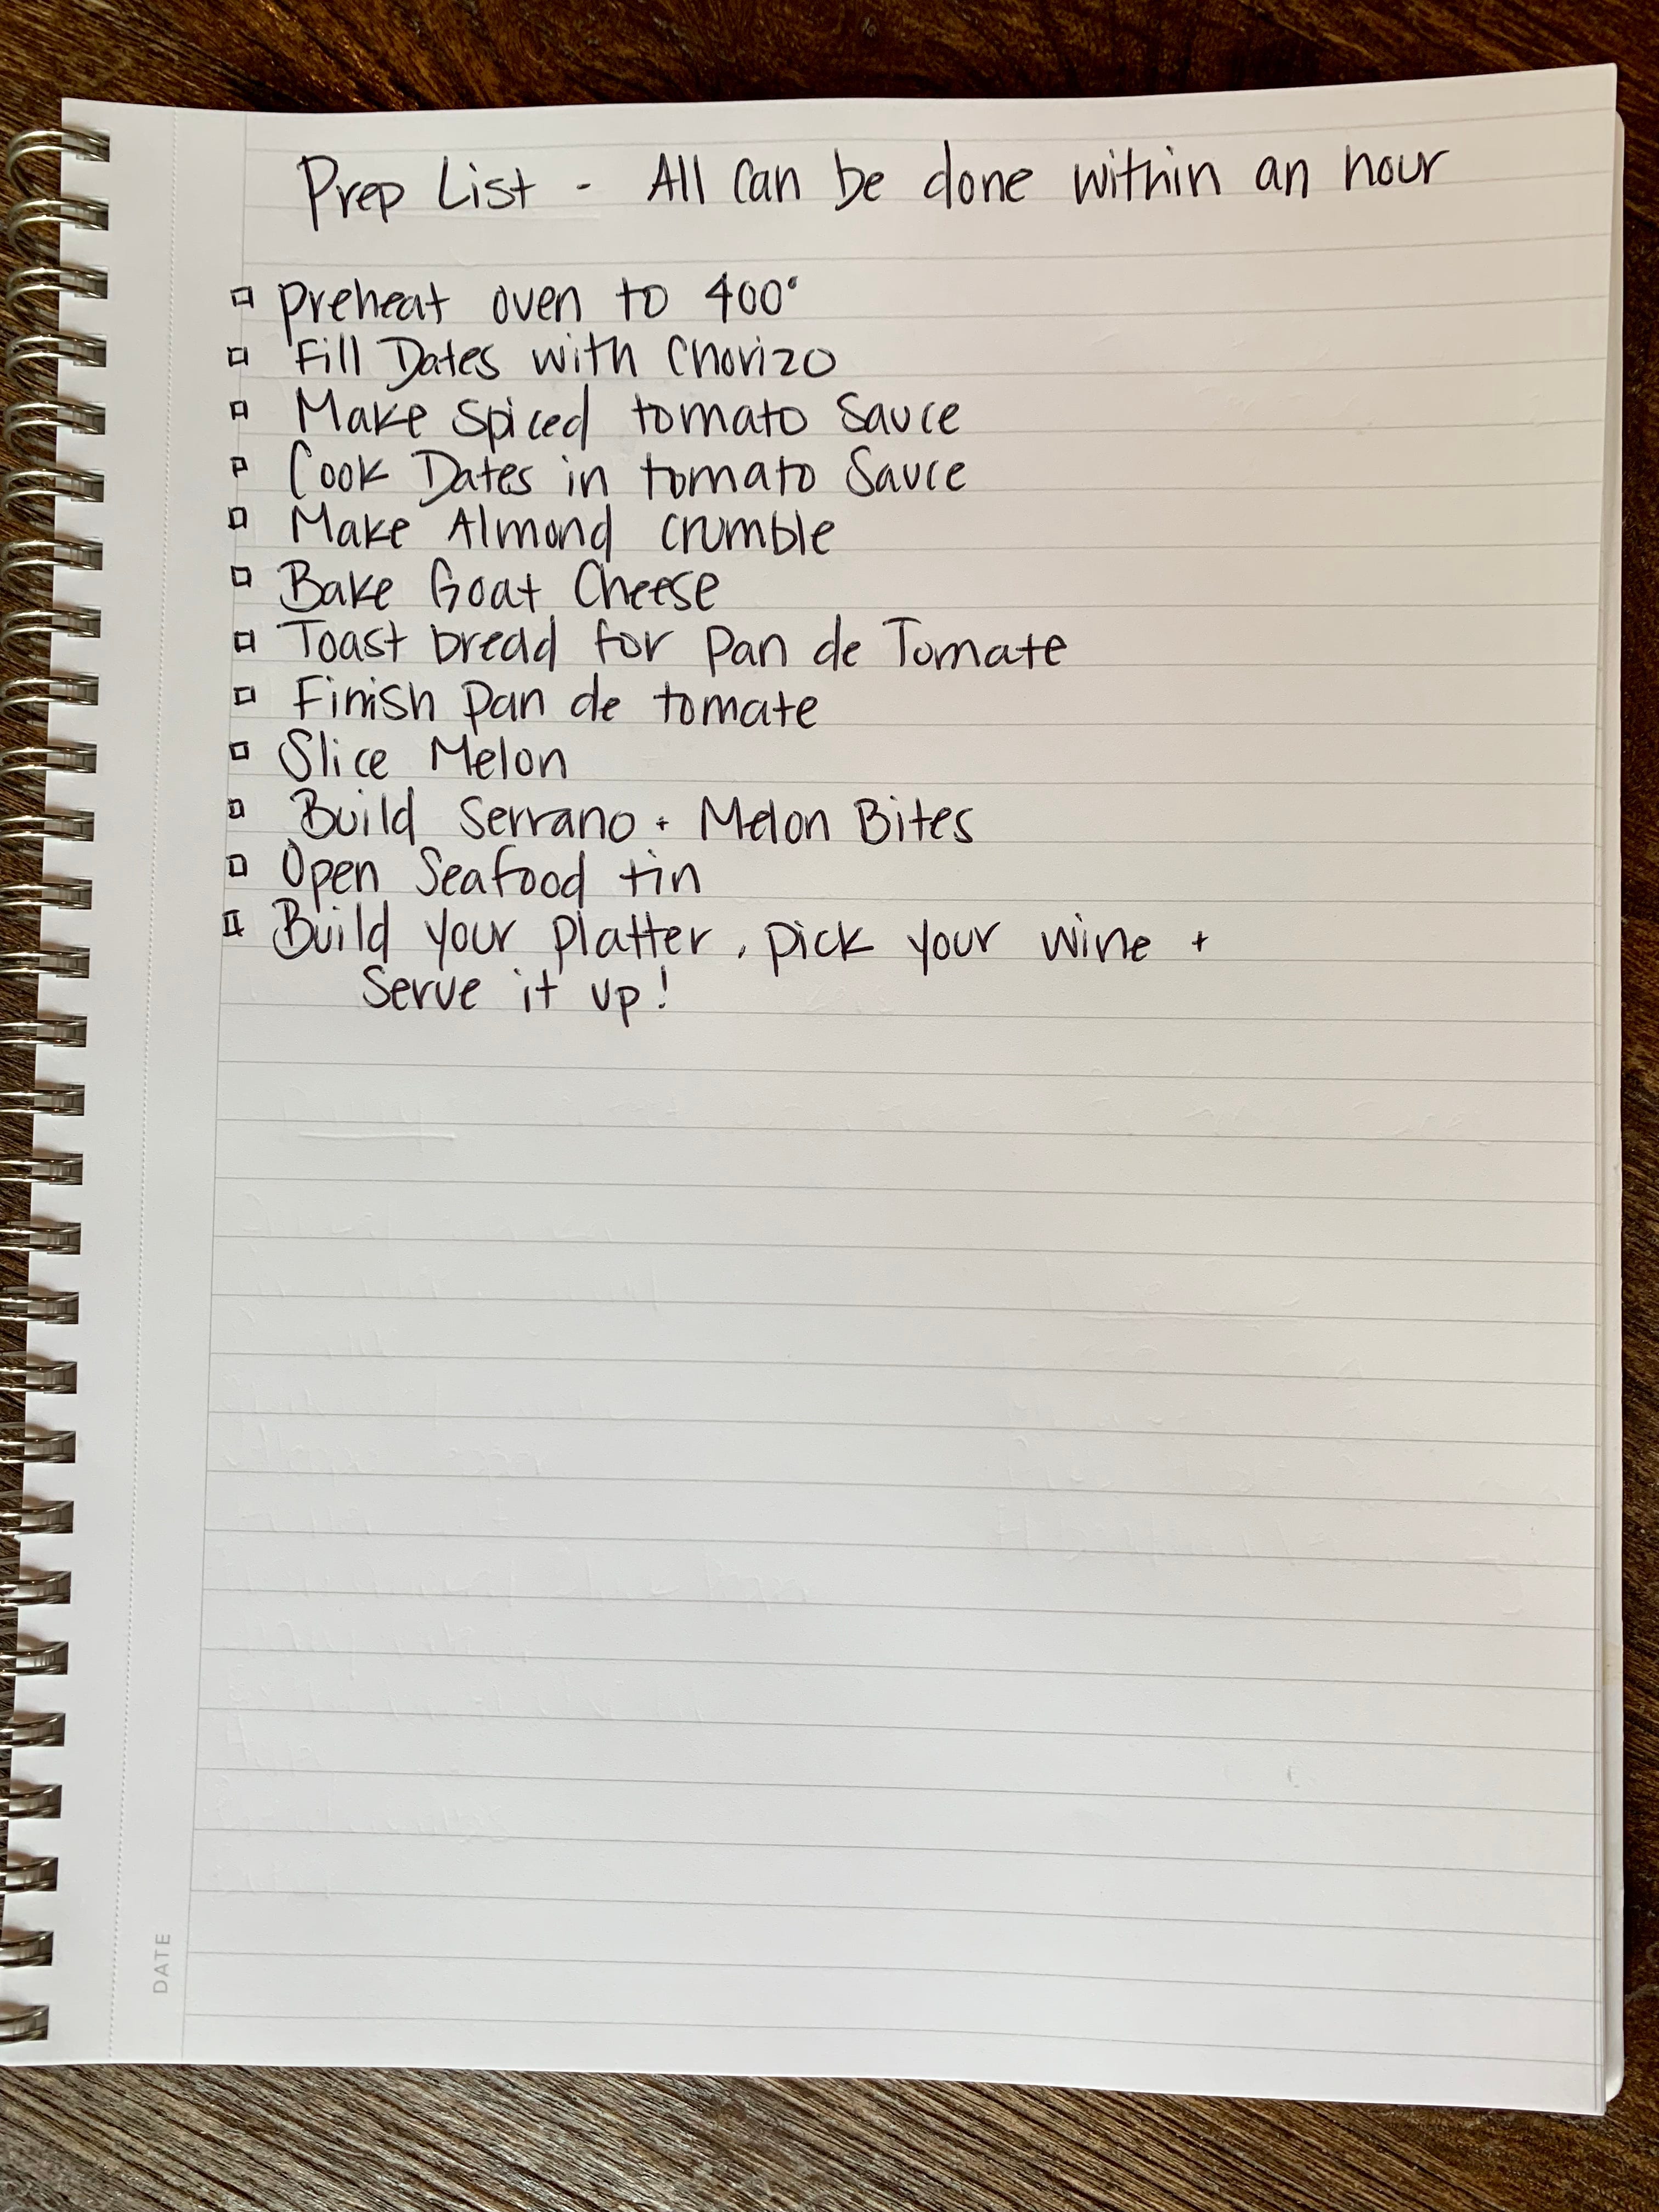 Prep List - All can be done within an hour
□ preheat oven to 400°
□ Fill Dates with Chorizo
□ Make Spiced tomato Sauce
□ Cook Dates in tomato Sauce
□ Make Almond crumble
□ Bake Goat Cheese
□ Toast bread for Pan de Tomate
□ Finish pan de tomate
□ Slice Melon
□ Build Serrano + Melon Bites
□ Open Seafood tin
□ Build your platter, pick your wine +
Serve it up!
DATE